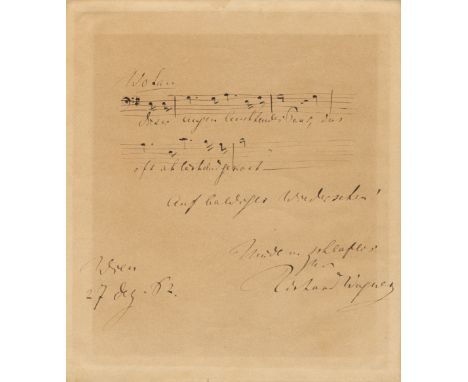 Wotan
Dieser Augen leuchtendes Paar, das
oft ich lächelnd gekos't
Auf baldiges Wiedersehen!
Wien
27 Dez. 62.
Richard Wagner